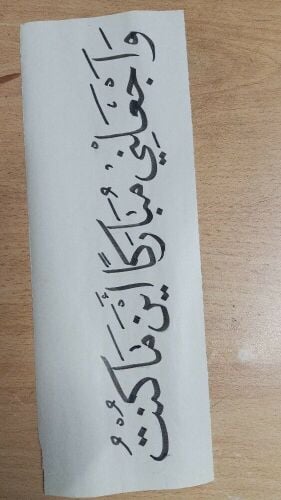 وَاجْعَلْنِي مُبَارَكًا أَيْنَ مَا كُنْتُ